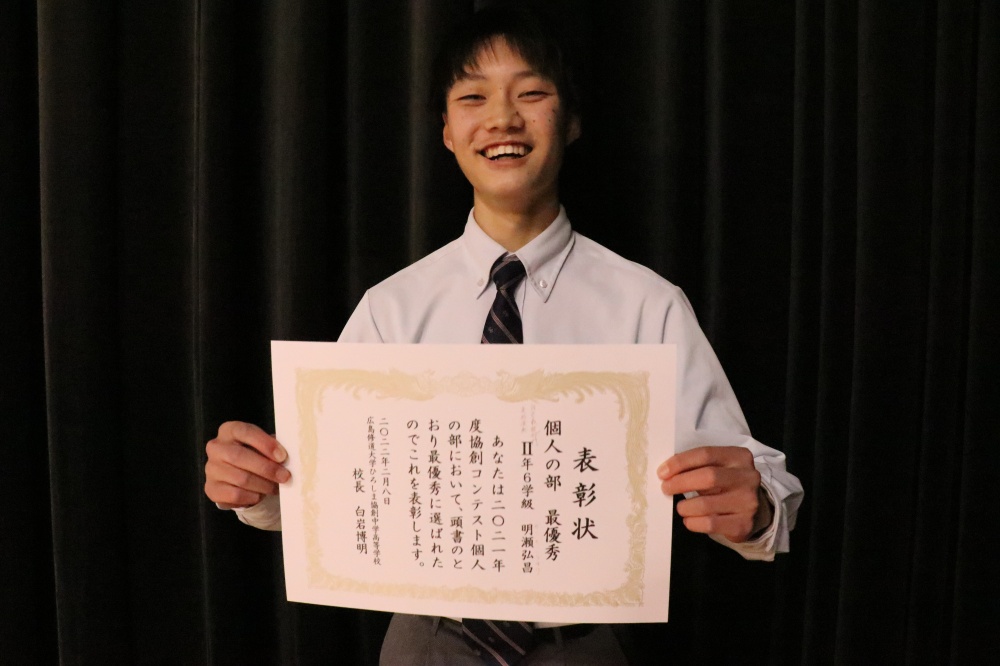 表彰状
個人の部　最優秀
Ⅱ年6学級　明瀬弘昌
あなたは二〇二一年
度協創コンテスト個人
の部において、頭書のと
おり最優秀に選ばれた
のでこれを表彰します。
二〇二二年二月八日
広島修道大学ひろしま協創中学高等学校
校長　白岩博明